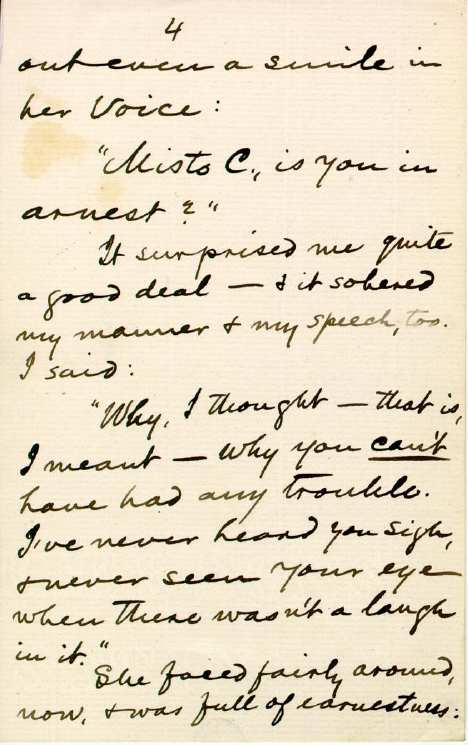 4
out even a smile in
her voice:
"Misto C., is you in
arnest?"
It surprised me quite
a good deal — & it sobered
my manner & my speech, too.
I said:
"Why, I thought — that is,
I meant — why you can't
have had any trouble.
I've never heard you sigh,
& never seen your eye
when there wasn't a laugh
in it."
She faced fairly around,
now, & was full of earnestness: